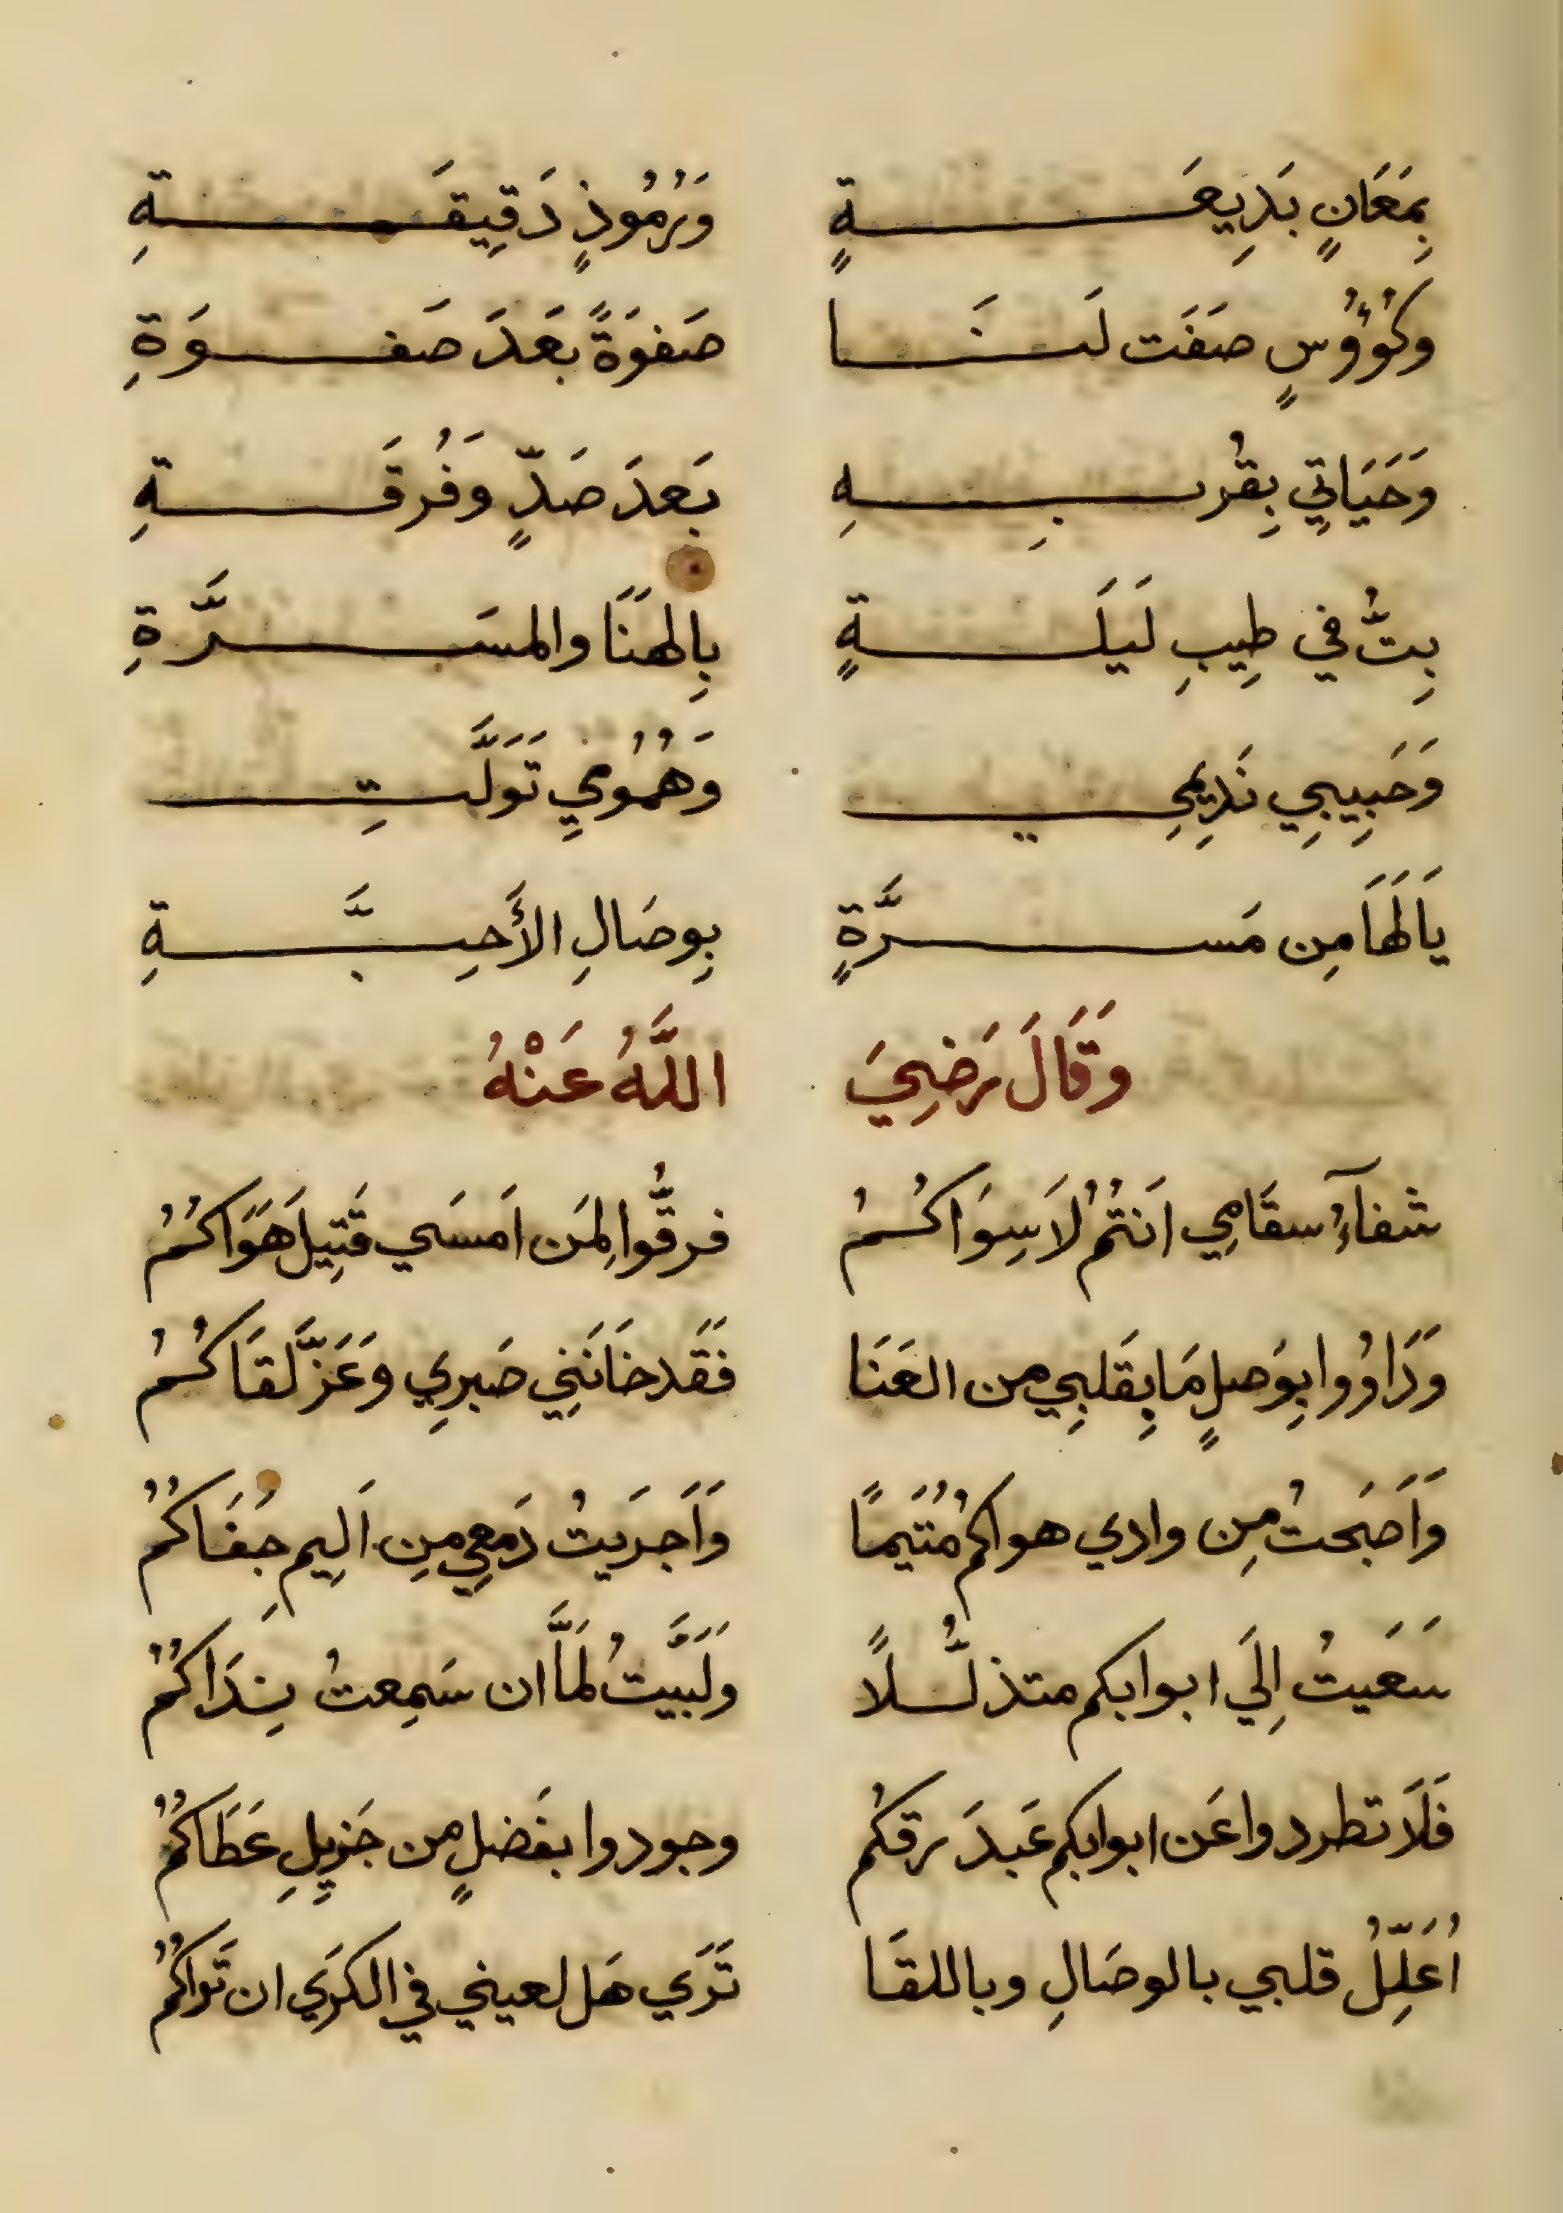 بِمَعَانٍ بَدِيعَةٍ وَرُمُوذٍ دَقِيقَةِ
وكُؤُوسٍ صَفَت لَنَا صَفوَةً بَعدَ صَفوَةِ
وَحَيَاتِي بِقُربِهِ بَعدَ صَدٍّ وَفُرقَةِ
بِتُّ في طِيبِ لَيلَةٍ بِالهَنَا والمسَرَّةِ
وَحَبِيبِي نَدِيمِي وَهُمُومِي تَوَلَّتِ
يَالَهَا مِن مَسرَّةٍ بِوِصَالِ الأَحِبَّةِ
وَقَالَ رَضِيَ اللَّهُ عَنْهُ
شفآءُ سقَامِي اَنتُمُ لاَ سِوَاكُمُ فرقُّوا لِمَن اَمسَي قَتِيلَ هَوَاكُمُ
وَدَاوُوا بِوَصلٍ مَا بِقَلبِي من العَنَا فَقَد خَانَنِي صَبرِي وَعَزَّ لقَاكُمُ
وَاَصبَحتُ مِن وادي هواكُم مُتَيمًا وَاَجرَيتُ دَمعِي مِن اَلِيمِ جَفَاكُمُ
سَعَيتُ اِلَي ابوابكم متذلُّلًا ولَبَّيتُ لَمَّا ان سَمِعتُ نِدَاكُمُ
فَلَا تطردوا عَن ابوابكم عَبدَ رقكُم وجودوا بفَضلٍ من جَزِيلِ عَطَاكُمُ
اُعَلِّلُ قلبي بالوصَالِ وباللقَا تَرَي هَل لعيني في الكرَي ان تَراكُمُ